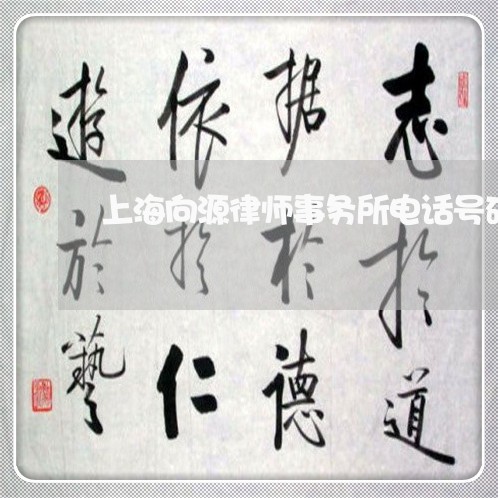 志於道
据於德
依於仁
遊於藝
上海向源律师事务所电话号